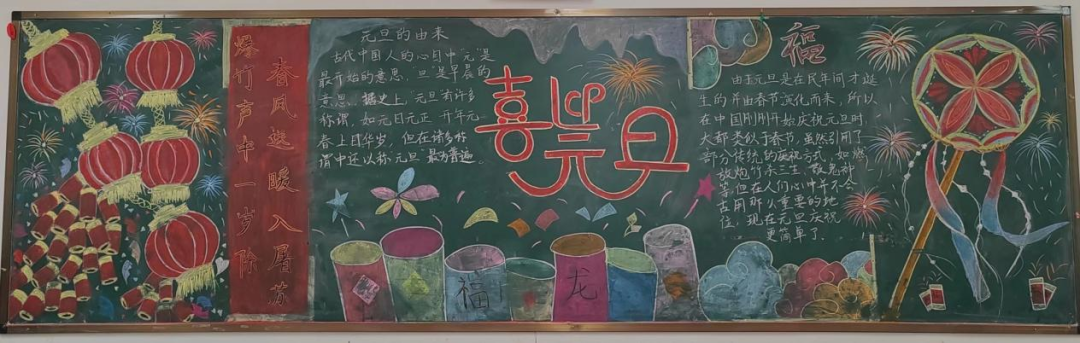 爆竹声中一岁除
春风送暖入屠苏
元旦的由来
古代中国人的心目中"元"是
最开始的意思，旦"是早晨的
意思。据史上"元旦有许多
称谓，如元日元正 开年元
春上日华岁，但在诸多称
谓中还以称元旦 最为普遍
喜迎元旦
福
龙
福
由于元旦是在民年间才诞
生的并由春节演化而来，所以
在中国刚刚开始庆祝元旦时
大都类似于春节，虽然引用了
部分传统的庆祝方式，如燃
放炮竹杀三生、敬鬼神
等，但在人们心中并不会
占用那么重要的地
位，现在元旦庆祝
更简单了、